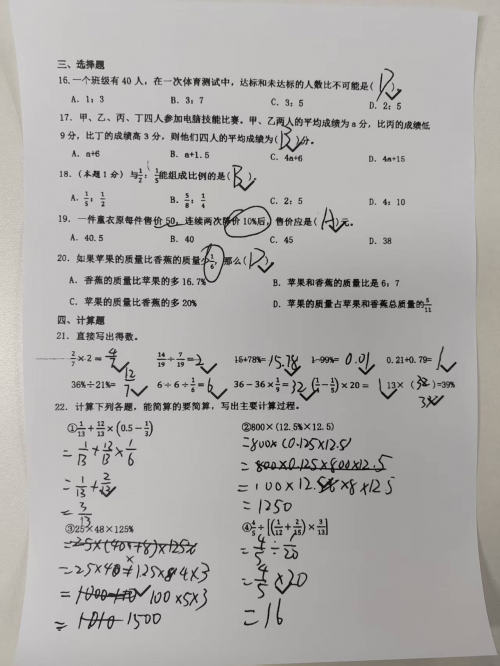 三、选择题
16.一个班级有40人，在一次体育测试中，达标和未达标的人数比不可能是( D )
A. 1：3 B. 3：7 C. 3：5 D. 2：5
17. 甲、乙、丙、丁四人参加电脑技能比赛。甲、乙两人的平均成绩为a分，比丙的成绩低
9分，比丁的成绩高3分，则他们四人的平均成绩为( B )分。
A. a+6 B. a+1.5 C. 4a+6 D. 4a+15
18.（本题1分）与1/2：1/5能组成比例的是( B )
A. 1/5：1/2 B. 5/8：1/4 C. 2：5 D. 4：10
19. 一件童衣原每件售价50，连续两次降价10%后，售价应是( A )元。
A. 40.5 B. 40 C. 45 D. 38
20. 如果苹果的质量比香蕉的质量少1/6，那么( D )
A. 香蕉的质量比苹果的多16.7% B. 苹果和香蕉的质量比是6：7
C. 苹果的质量比香蕉的多20% D. 苹果的质量占苹果和香蕉总质量的5/11
四、计算题
21. 直接写出得数。
2/7×2=4/7 14/19÷7/19=2 15+78%=15.78 1-99%=0.01 0.21+0.79=1
36%÷21%=12/7 6÷6÷1/6=6 36-36×1/9=32 (1/4-1/5)×20=1 13×( )=39%
22. 计算下列各题，能简算的要简算，写出主要计算过程。
①1/13+12/13×(0.5-1/3) ②800×(12.5%×12.5)
=1/13+12/13×1/6 =800×(0.125×12.5)
=1/13+2/13 =800×0.125×800×12.5
=3/13 =100×12.5
=1250
③25×48×125% ④4/5÷[(1/12+2/15)×3/13]
=25×(40+8)×125% =4/5÷1/20
=25×4 =4/5×20
100×5×3 =16
=1010 1500